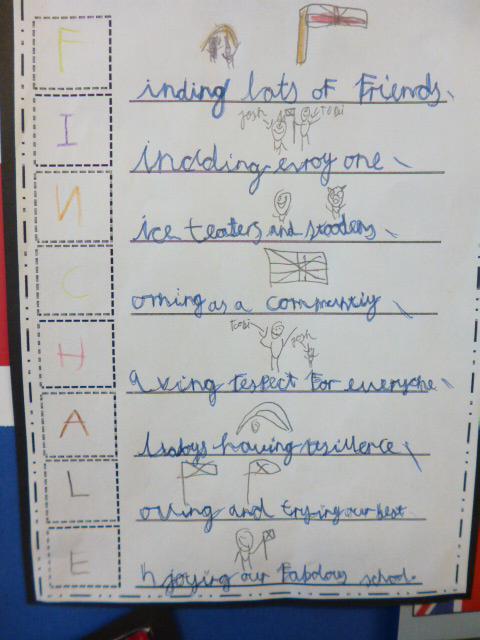 F inding lots of Friends.
josh Tobi
I nclding evroy one
N ice teaters and stooders
C orning as a communtiy
Tobi josh
H aving respect for everyone
A lsabys having resilience
L oving and trying our best
E njoying our Fabolous school.